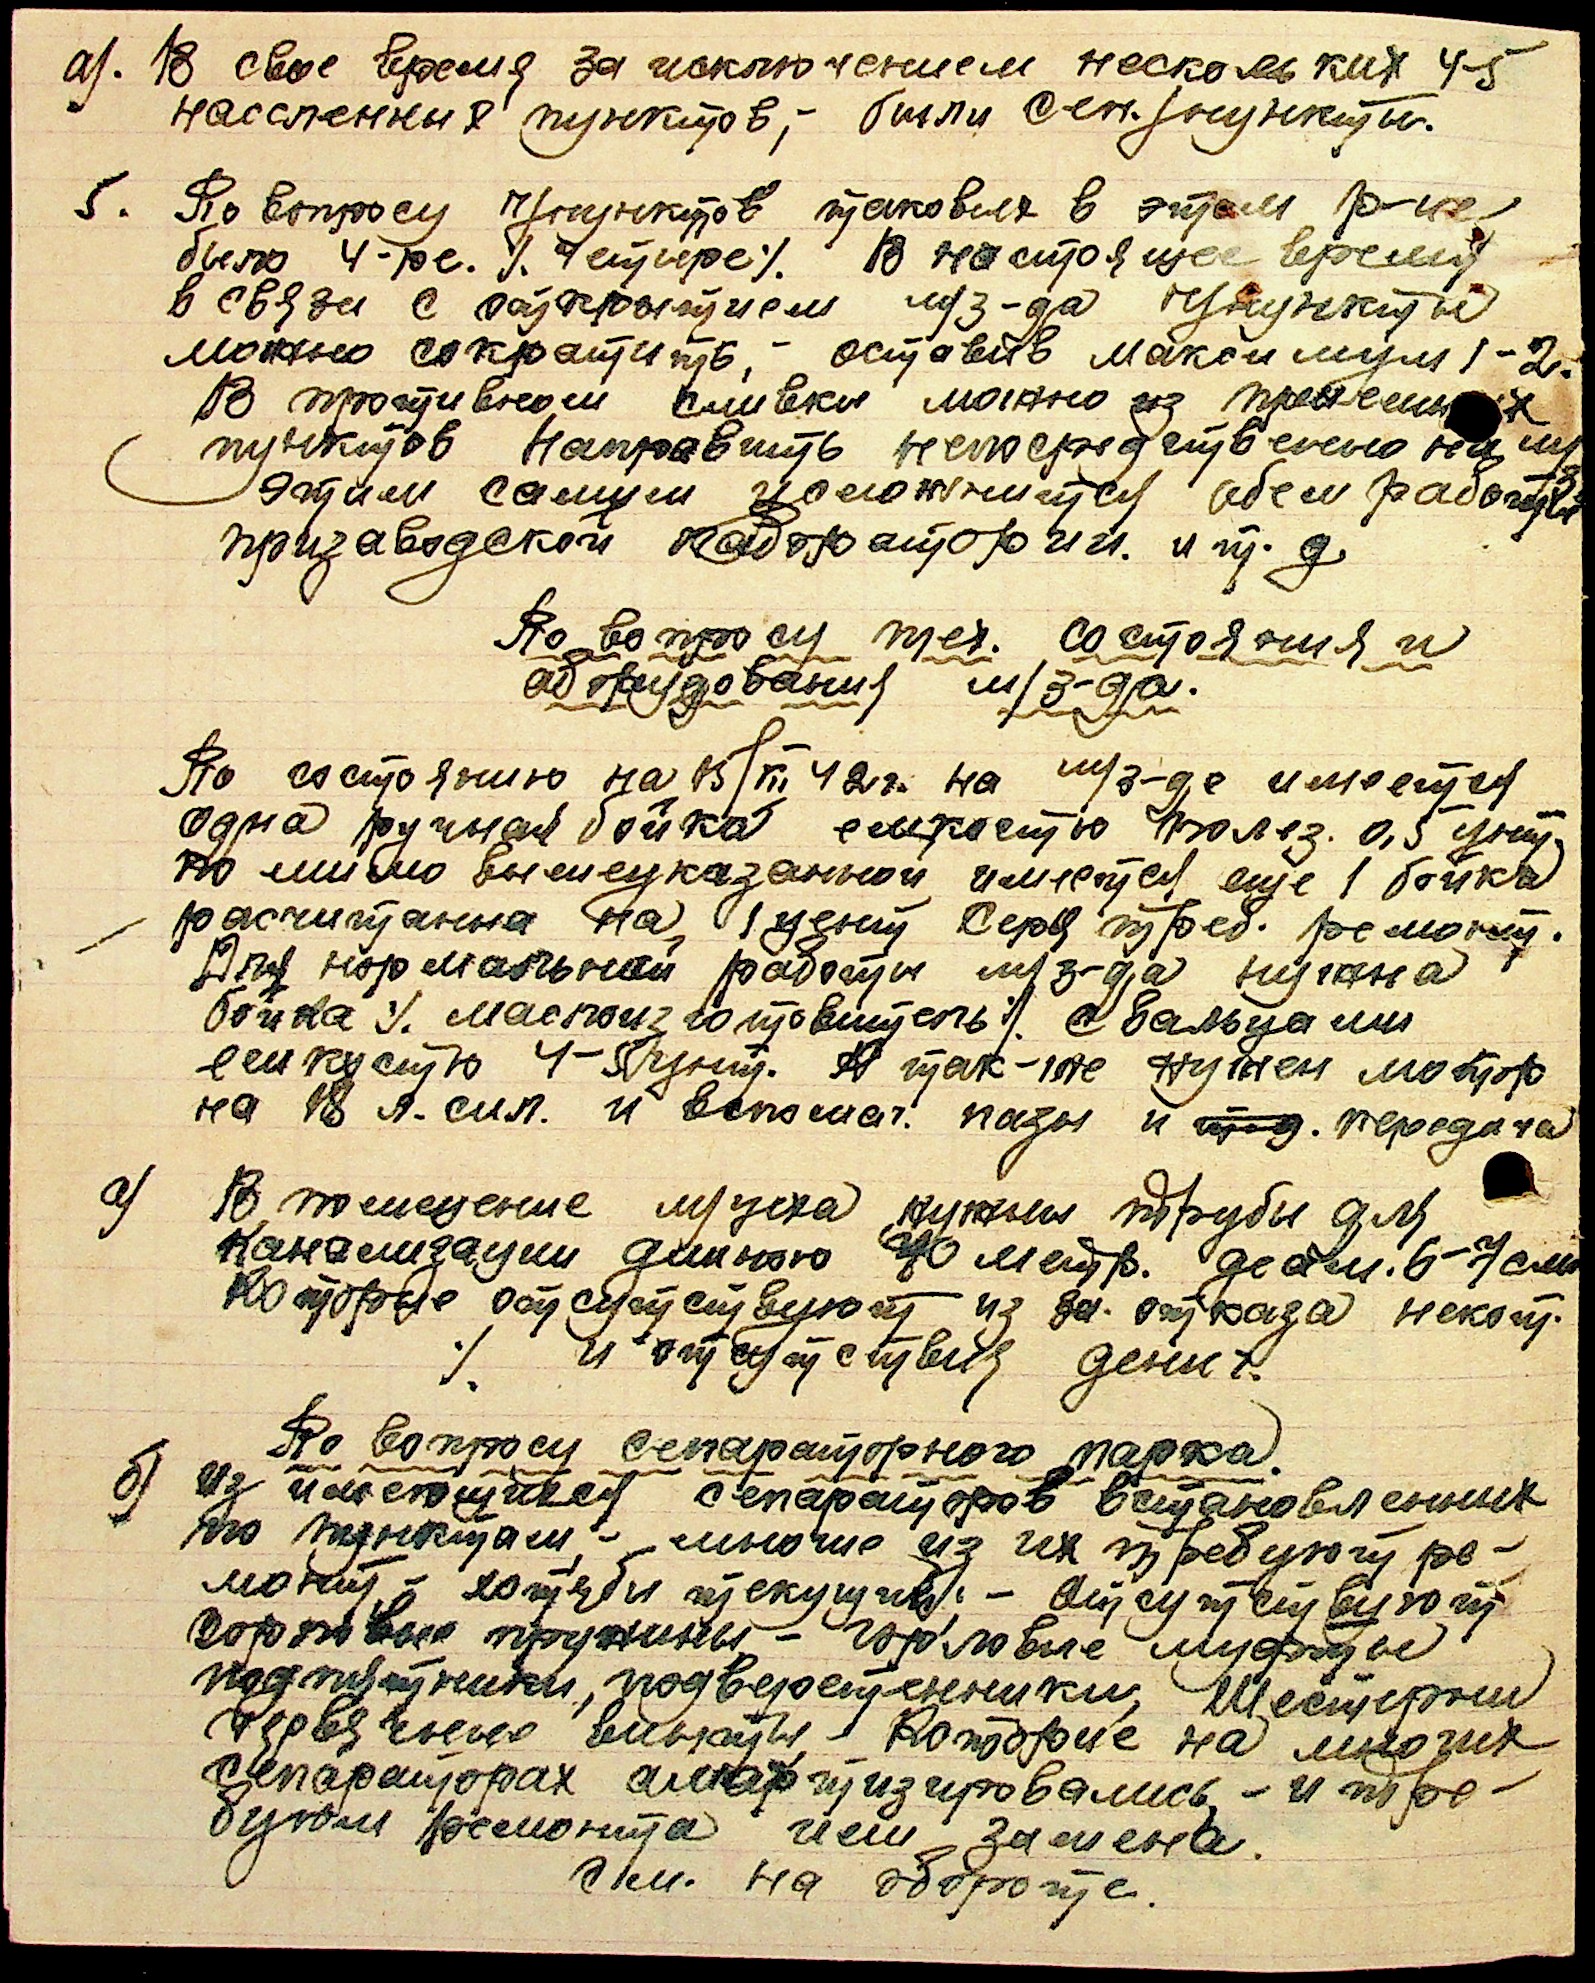 а). В свое время за исключением нескольких 4-5
населенных пунктов, - были сеп./пункты.
5. По вопросу ч/пунктов таковых в этом р-не
было 4-ре. /. четыре/. В настоящее время
в связи с открытием м/з-да ч/пункты
можно сократить, - оставив максимум 1-2.
В противном сливки можно из
пунктов направить непосредственно на м/з
Этим самым обем работы
призаводской лаборатории. и т. д.
По вопросу тех. состояния и
оборудования м/з-да.
По состоянию на 15/III 42г. на м/з-де имеется
одна ручная бойка емкостю полез. 0,5 цнт.
по мимо вышеуказанной имеется еще 1 бойка
расчитанна на 1 цент треб. ремонт.
Для нормальной работы м/з-да нужна
бойка /. маслоизготовитель/. с вальцами
емкустю 4-5 цнт. А так-же нужен мотор
на 18 л. сил. и вспомаг. пазы и т-д. передача
а) В помещение м/цеха нужны трубы для
канализации длиною 40 метр. деам. 6-7 см
Которые отсутствуют из за. отказа некот.
/. и отсутствия денег.
По вопросу сепараторного парка.
б) Из имеющихся сепараторов встановленных
по пунктам, - многие из их требуют ре-
монт, - хотябы текущий. - Отсутствуют
пружины - горловые муфты
подпятники, подверетенники, Шестерни
червячные винты - Которые на многих
сепараторах амартизировались, - и тре-
буюм ремонта или замена.
См. на обороте.